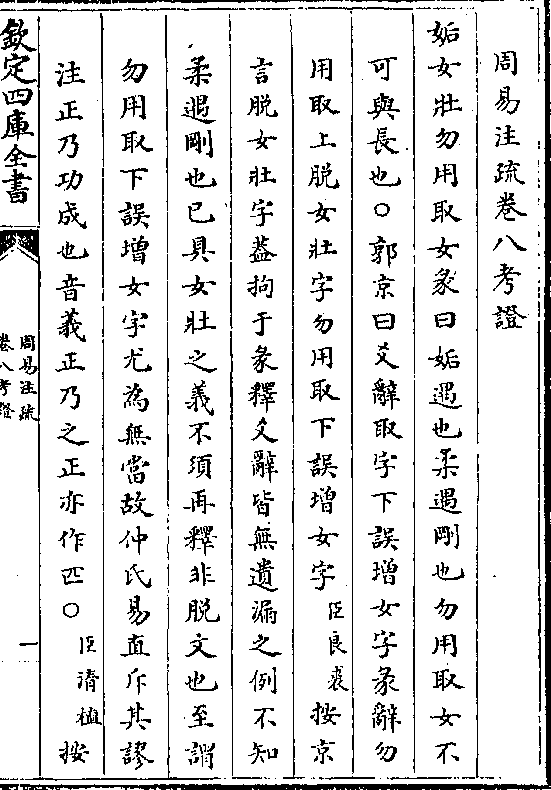 周易注疏卷八考證
姤女壯勿用取女彖曰姤遇也柔遇剛也勿用取女不
可與長也○郭京曰爻辭取字下誤增女字彖辭勿
用取上脫女壯字勿用取下誤增女字臣良裘按京
言脫女壯字蓋拘于彖釋爻辭皆無遺漏之例不知
柔遇剛也已具女壯之義不須再釋非脫文也至謂
勿用取下誤增女字尤為無當故仲氏易直斥其謬
注正乃功成也音義正乃之正亦作匹○臣清植按
欽定四庫全書
周易注疏
卷八考證
一